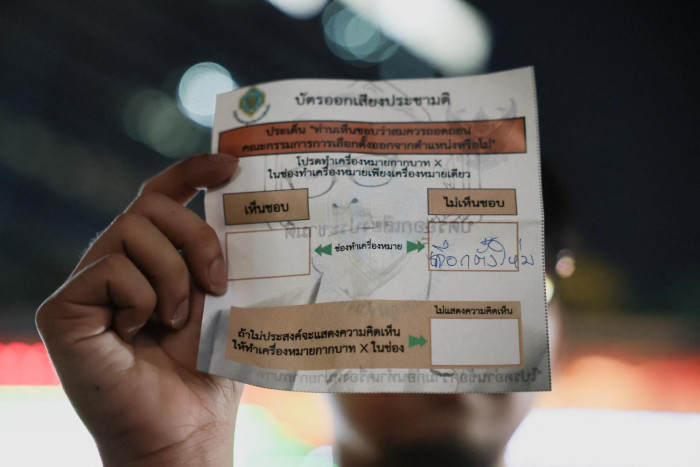 บัตรออกเสียงประชามติ
ประเด็น "ท่านเห็นชอบว่าสมควรถอดถอน
คณะกรรมการการเลือกตั้งออกจากตำแหน่งหรือไม่"
โปรดทำเครื่องหมายกากบาท X
ในช่องทำเครื่องหมายเพียงเครื่องหมายเดียว
เห็นชอบ
ไม่เห็นชอบ
ช่องทำเครื่องหมาย
เลือกตั้งใหม่
ไม่แสดงความคิดเห็น
ถ้าไม่ประสงค์จะแสดงความคิดเห็น
ให้ทำเครื่องหมายกากบาท X ในช่อง